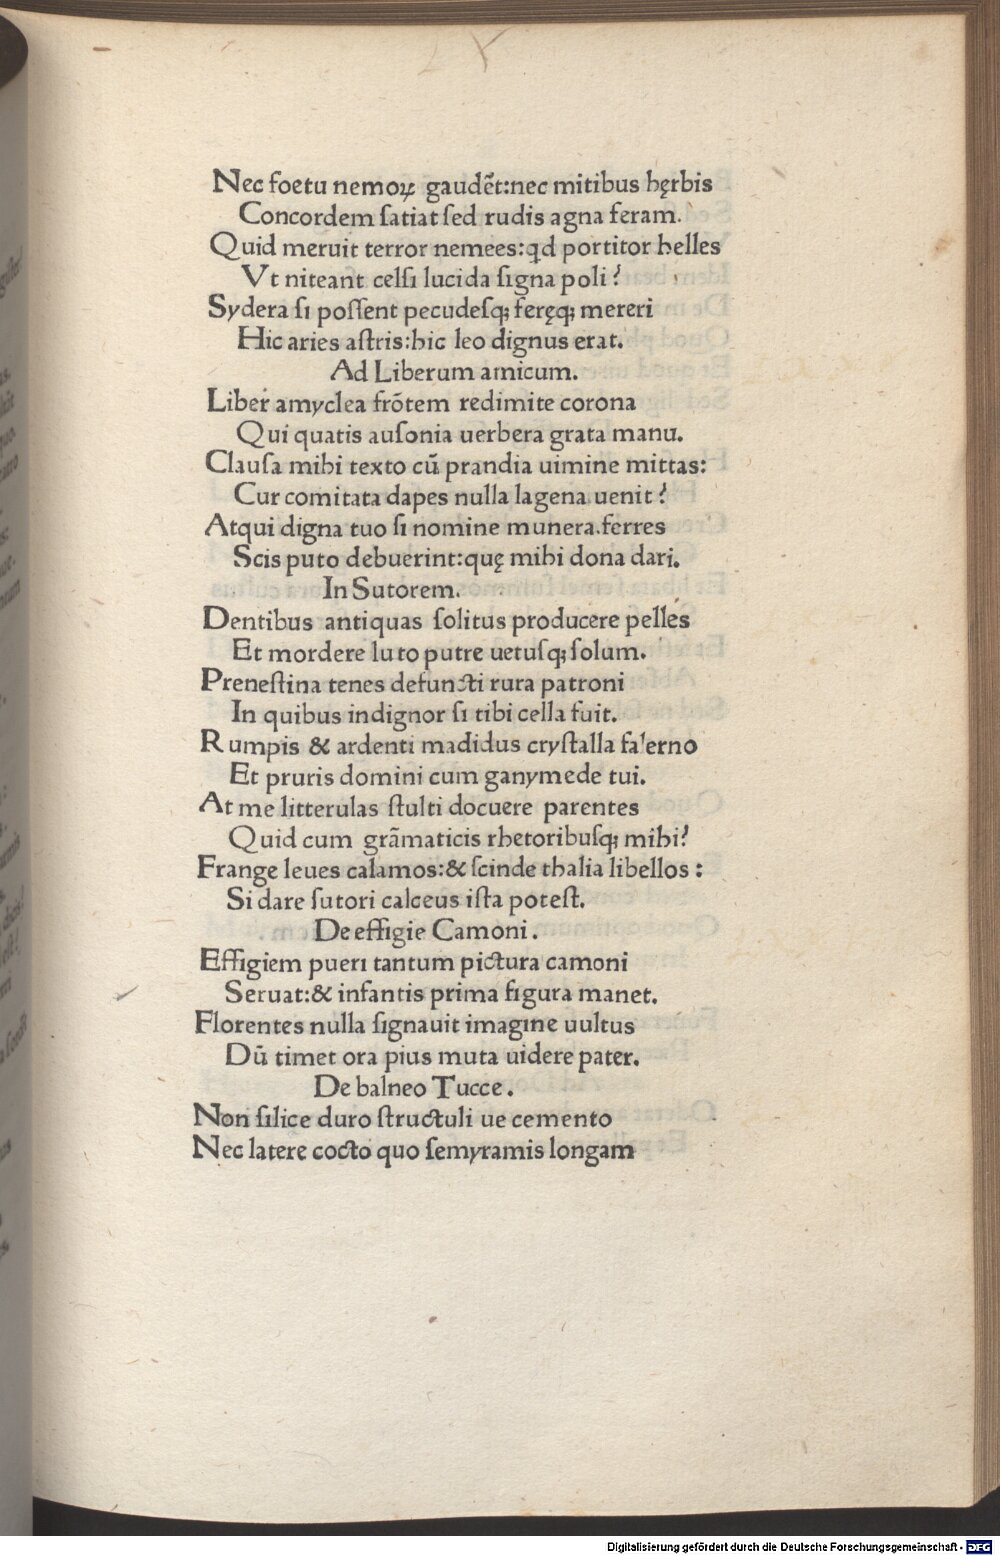 Nec foetu nemoꝝ gaudēt:nec mitibus hęrbis
Concordem ſatiat ſed rudis agna feram.
Quid meruit terror nemees:qd portitor helles
Vt niteant celſi lucida ſigna poli?
Sydera ſi poſſent pecudeſqꝫ feręqꝫ mereri
Hic aries aſtris:hic leo dignus erat.
Ad Liberum amicum.
Liber amyclea frōtem redimite corona
Qui quatis auſonia uerbera grata manu.
Clauſa mihi texto cū prandia uimine mittas:
Cur comitata dapes nulla lagena uenit?
Atqui digna tuo ſi nomine munera.ferres
Scis puto debuerint:quę mihi dona dari.
In Sutorem.
Dentibus antiquas ſolitus producere pelles
Et mordere luto putre uetuſqꝫ ſolum.
Preneſtina tenes defuncti rura patroni
In quibus indignor ſi tibi cella fuit.
Rumpis & ardenti madidus cryſtalla falerno
Et pruris domini cum ganymede tui.
At me litterulas ſtulti docuere parentes
Quid cum grāmaticis rhetoribuſqꝫ mihi?
Frange leues calamos:& ſcinde thalia libellos:
Si dare ſutori calceus iſta poteſt.
De effigie Camoni.
Effigiem pueri tantum pictura camoni
Seruat:& infantis prima figura manet.
Florentes nulla ſignauit imagine uultus
Dū timet ora pius muta uidere pater.
De balneo Tucce.
Non ſilice duro ſtructuli ue cemento
Nec latere cocto quo ſemyramis longam
Digitalisierung gefördert durch die Deutsche Forschungsgemeinschaft - DFG